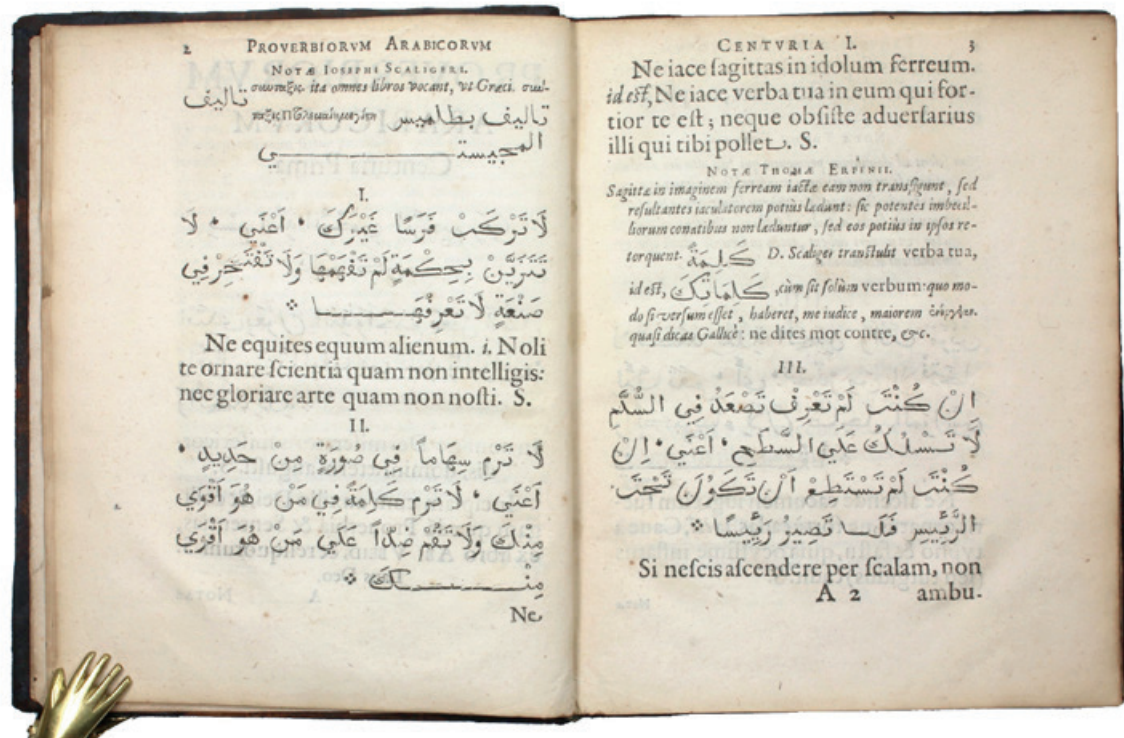 2 PROVERBIORVM ARABICORVM
NOTÆ IOSEPHI SCALIGERI.
تاليف σύνταξις. ita omnes libros vocant, vt Græci.
تاليف بطلاميس
المجيستي
I.
لَا تَرْكَب فَرَسًا غَيْرَكَ ٠ اَعْنَي ٠ لَا
تَتَزَيَّنْ بِحِكْمَةٍ لَمْ تَفْهَمْهَا وَلَا تَفْتَخِرْ فِي
صَنْعَةٍ لَا تَعْرِفُهَا ܀
Ne equites equum alienum. i. Noli
te ornare ſcientiâ quam non intelligis:
nec gloriare arte quam non noſti. S.
II.
لَا تَرْمِ سِهَاماً فِي صُورَةٍ مِنْ حَدِيدٍ ٠
اَعْنَي ٠ لَا تَرْم كَلِمَةً فِي مَنْ هُوَ اَقْوَي
مِنْكَ وَلَا تَقُمْ ضِدّاً عَلَي مَنْ هُوَ اَقْوَي
مِنْكَ ܀
Ne
CENTVRIA I. 3
Ne iace ſagittas in idolum ferreum.
id eſt, Ne iace verba tua in eum qui for-
tior te eſt; neque obſiſte aduerſarius
illi qui tibi pollet. S.
NOTÆ THOMÆ ERPENII.
Sagittæ in imaginem ferream iactæ eam non transfigunt, ſed
reſultantes iaculatorem potiùs lædunt: ſic potentes imbecil-
liorum conatibus non læduntur, ſed eos potiùs in ipſos re-
torquent. كَلِمَةً D. Scaliger tranſtulit verba tua,
id eſt, كَلِمَاتكَ, cùm ſit ſolùm verbum: quo mo-
do ſi verſum eſſet, haberet, me iudice, maiorem
quaſi dicas Gallicè: ne dites mot contre, &c.
III.
اِنْ كُنْتَ لَمْ تَعْرِفْ تَصْعَدُ فِي السُّلَّمِ
لَا تَسْلُكْ عَلَي السَّطْحِ ٠ اَعْنَي ٠ اِنْ
كُنْتَ لَمْ تَسْتَطِعْ اَنْ تَكُونَ تَحْتَ
الرَّيِّيسِ فَلَا تَصِيرُ رَيِّيسًا ܀
Si neſcis aſcendere per ſcalam, non
A 2 ambu-